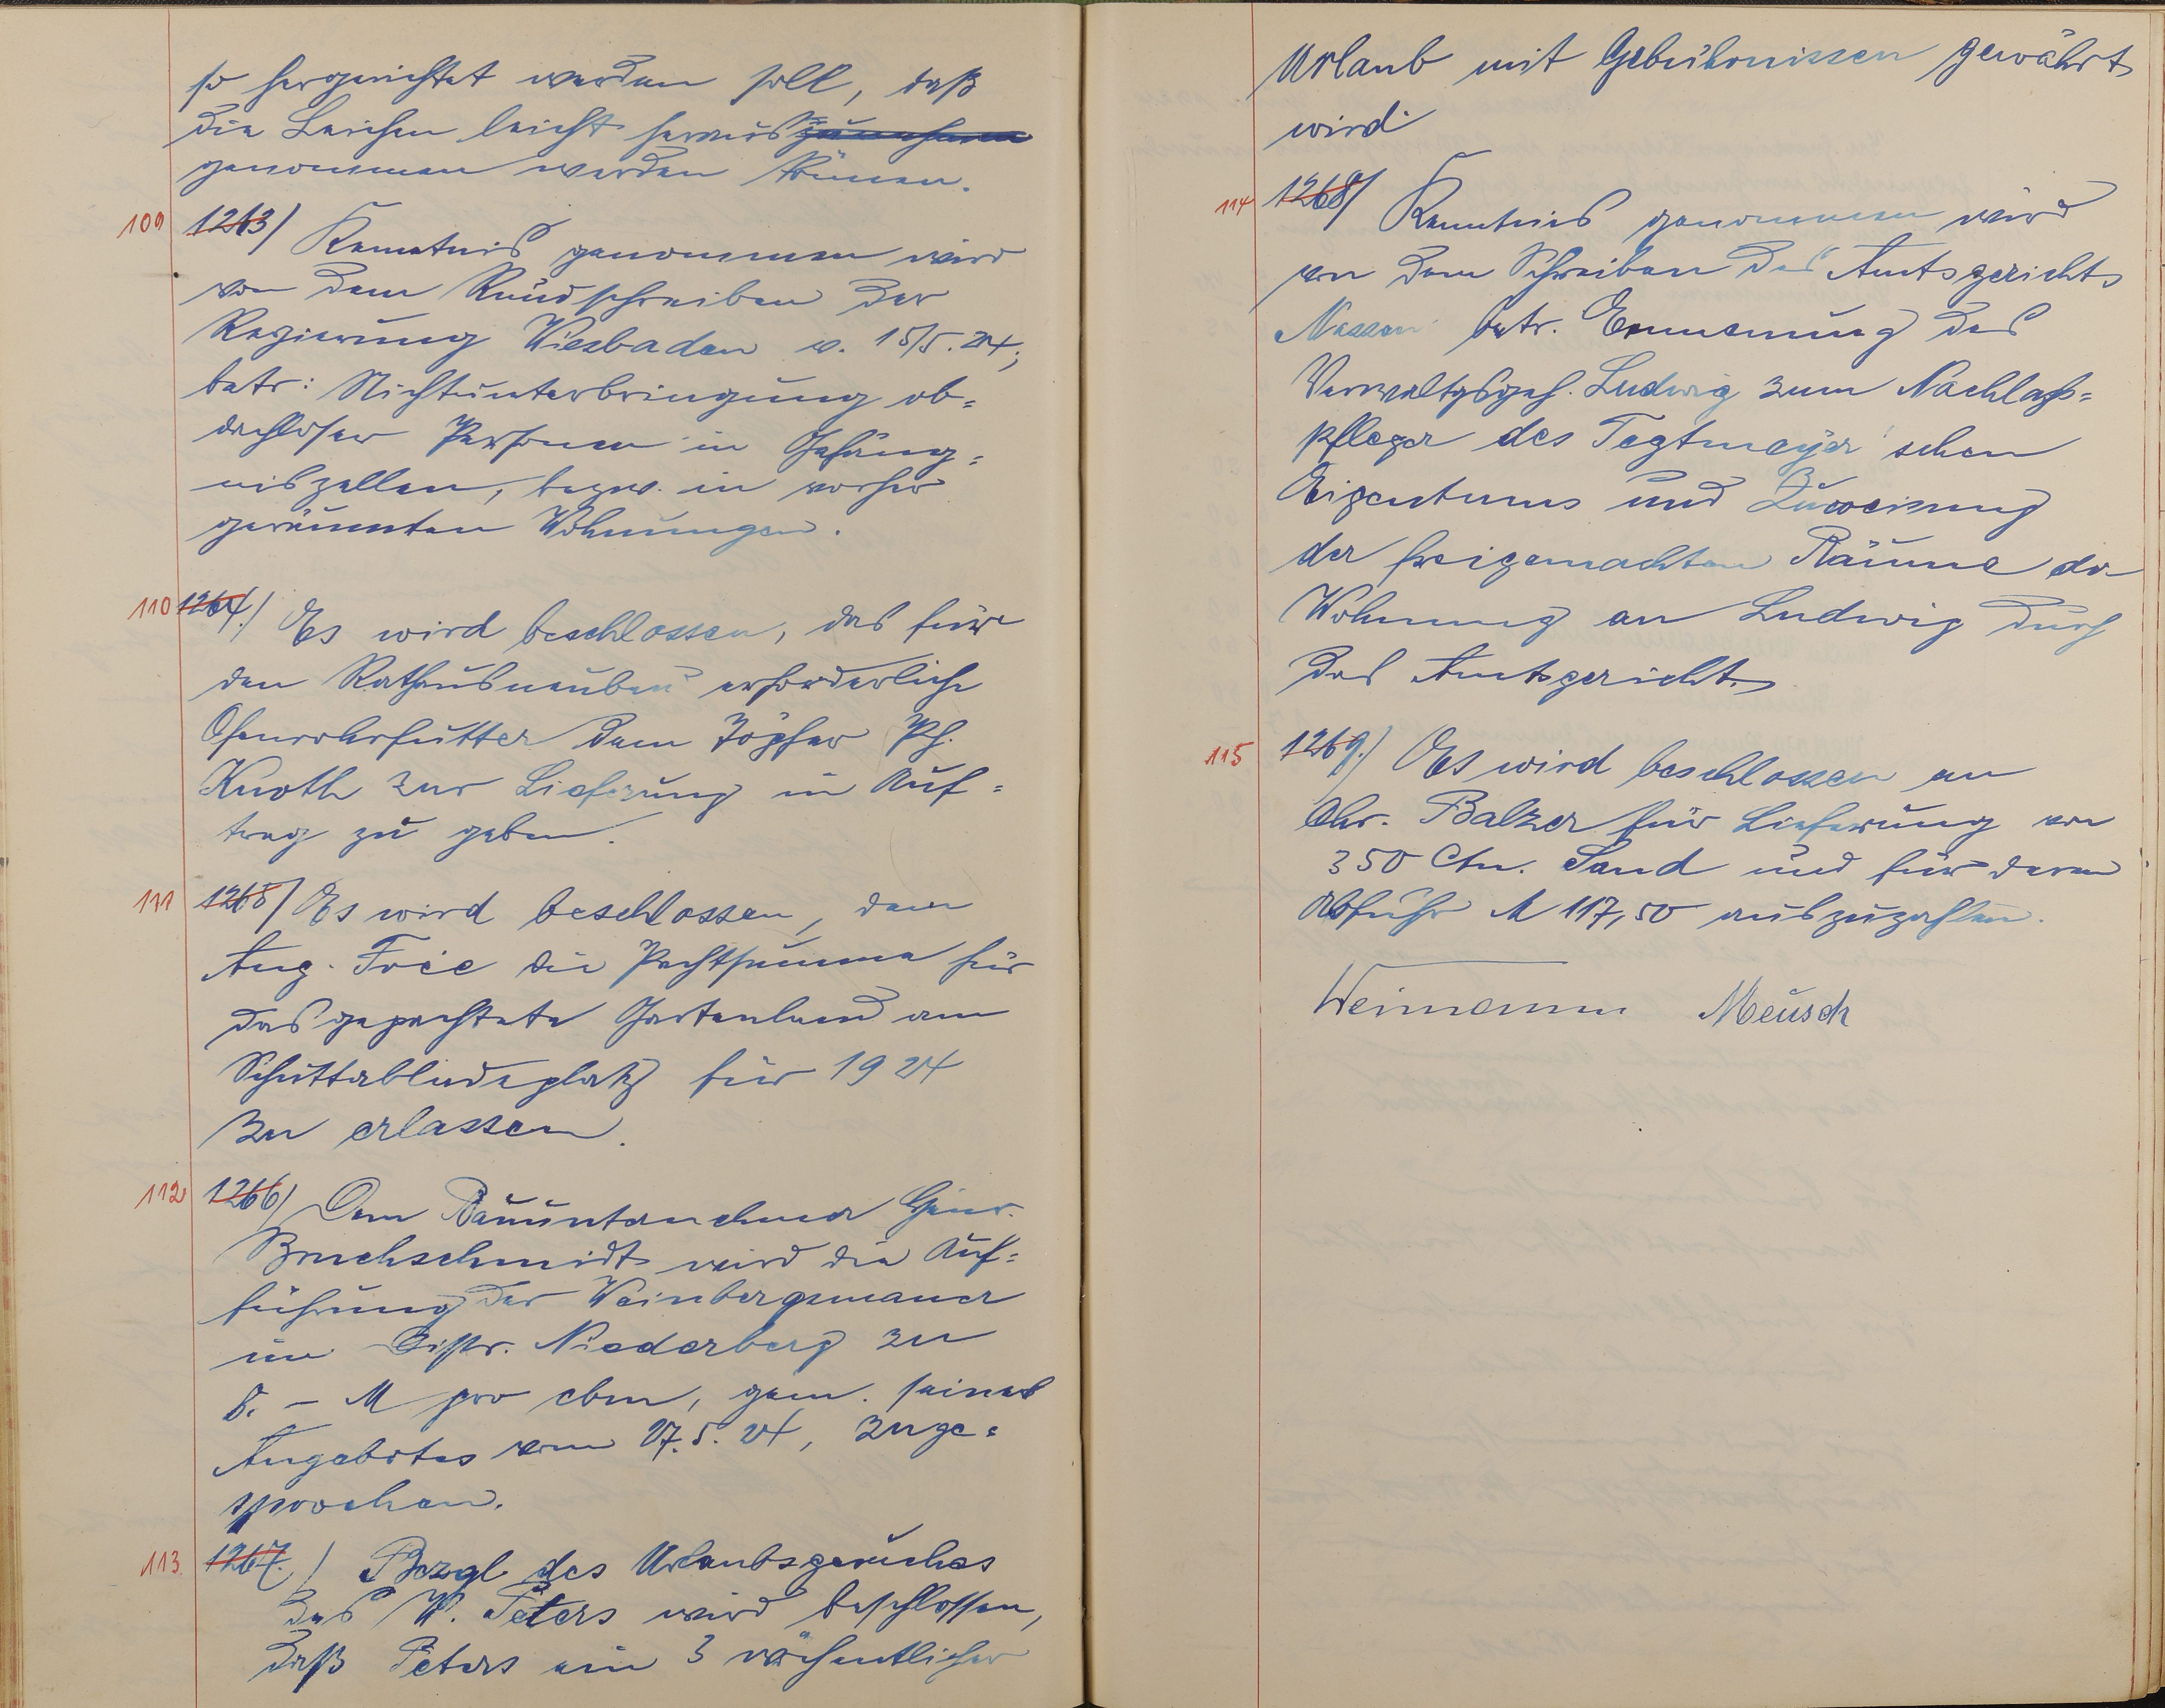 so hergerichtet werden soll, daß
die Leichen leicht heraus zunehmen
genommen werden können.
109 1263) Kenntnis genommen wird
von dem Rundschreiben der
Regierung Wiesbaden v. 15/5.24,
betr: Nichtunterbringung ob=
dachloser Personen in Gefäng=
niszellen, bezw. in vorher
geräumten Wohnungen.
110 1264.) Es wird beschlossen, das für
den Rathausneubau erforderliche
Ofenrohrfutter dem Töpfer Ph.
Knoth zur Lieferung in Auf=
trag zu geben.
111 1265) Es wird beschlossen, dem
Aug. die Pachtsumme für
das gepachtete Gartenland am
Schuttabladeplatz für 1924
zu erlassen.
112 1266) Dem Bauunternehmer Heinr.
Bruchschmidt wird die Auf=
führung der Weinbergsmauer
im Distr. Niederberg zu
8. – M pro cbm, gem. seines
Angebotes vom 27.5.24, zuge=
sprochen.
113. 1267.) Bezgl des Urlaubsgesuches
des W. Peters wird beschlossen,
daß Peters ein 3 wöchentlicher
Urlaub mit Gebührnissen gewährt
wird.
114 1268) Kenntnis genommen wird
von dem Schreiben des Amtsgerichts
Nassau betr. Ernennung des
Verwaltgsgeh. Ludwig zum Nachlaß=
pfleger des Tegtmeyer'schen
Eigentums und Zuweisung
der freigemachten Räume der
Wohnung an Ludwig durch
das Amtsgericht.
115 1269.) Es wird beschlossen an
Chr. Balzer für Lieferung von
350 Ctn. Sand und für deren
Abfuhr M 117,50 auszuzahlen.
Weimann Meusch